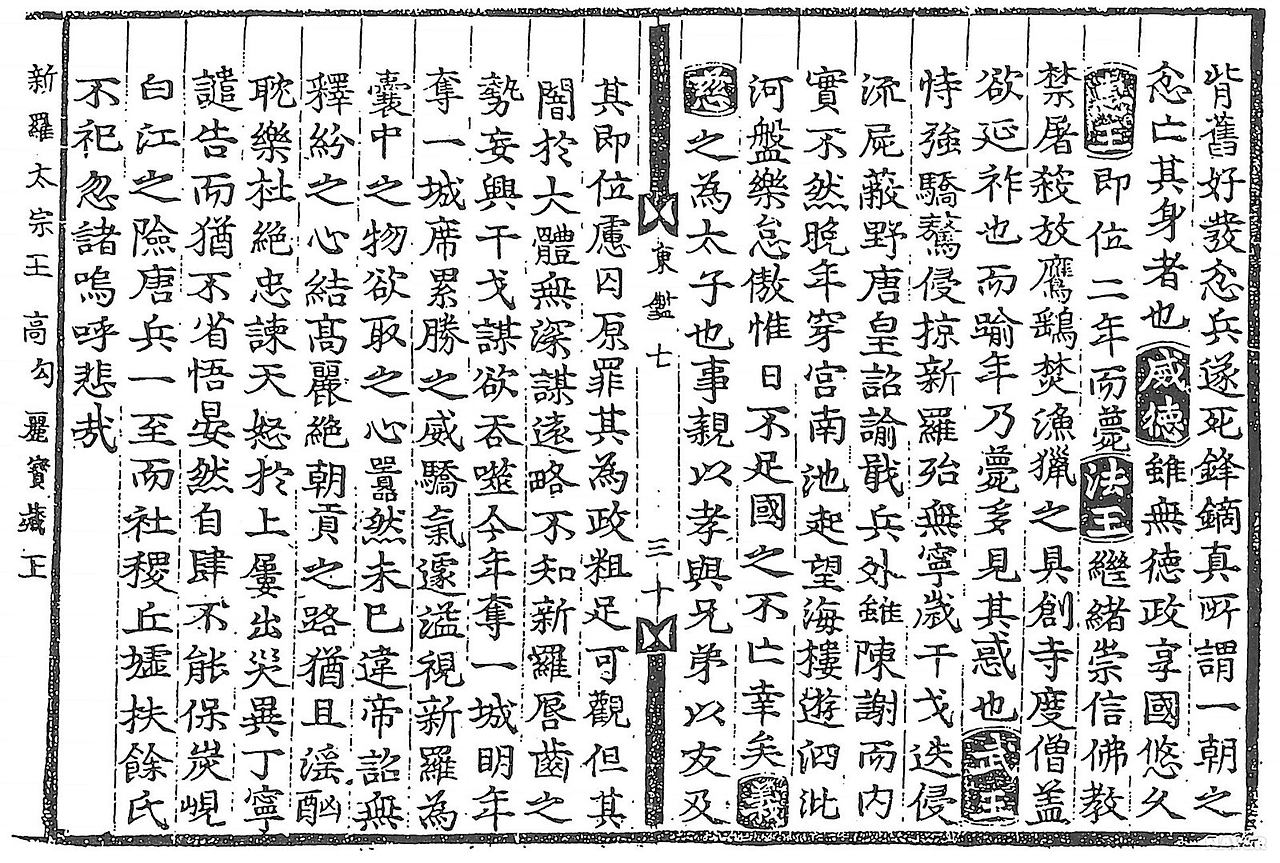 背舊好發忿兵遂死鋒鏑真所謂一朝之
忿亡其身者也威德雖無德政享國悠久
惠王即位二年而薨法王繼緒崇信佛教
禁屠殺放鷹鷂焚漁獵之具創寺度僧盖
欲延祚也而踰年乃薨多見其惑也武王
恃強驕驁侵掠新羅殆無寧歲干戈迭侵
流屍蔽野唐皇詔諭戢兵外雖陳謝而內
實不然晚年穿宮南池起望海樓遊泗沘
河盤樂怠傲惟日不足國之不亡幸矣義
慈之為太子也事親以孝與兄弟以友及
東鑑七 三十
其即位慮囚原罪其為政粗足可觀但其
闇於大體無深謀遠略不知新羅唇齒之
勢妄興干戈謀欲吞噬今年奪一城明年
奪一城席累勝之威驕氣遽溢視新羅為
囊中之物欲取之心囂然未已違帝詔無
釋紛之心結髙麗絶朝貢之路猶且滛酗
耽樂杜絶忠諫天怒於上屢出災異丁寧
譴告而猶不省悟晏然自肆不能保炭峴
白江之險唐兵一至而社稷丘墟扶餘氏
不祀忽諸嗚呼悲哉
新羅太宗王 高勾麗寶藏王